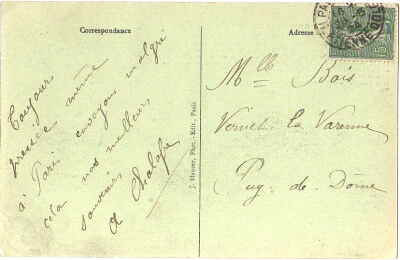 Correspondance
Toujours
pressée même
à Paris envoyons malgré
cela nos meilleurs
souvenirs
J. Hauser, Phot.-Edit., Paris
Adresse
PARIS
ETIENNE
Mlle Bois
Vernet la Varenne
Puy-de-Dôme